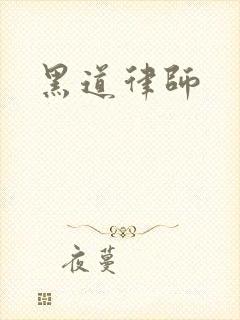 黑道律師
夜蔓